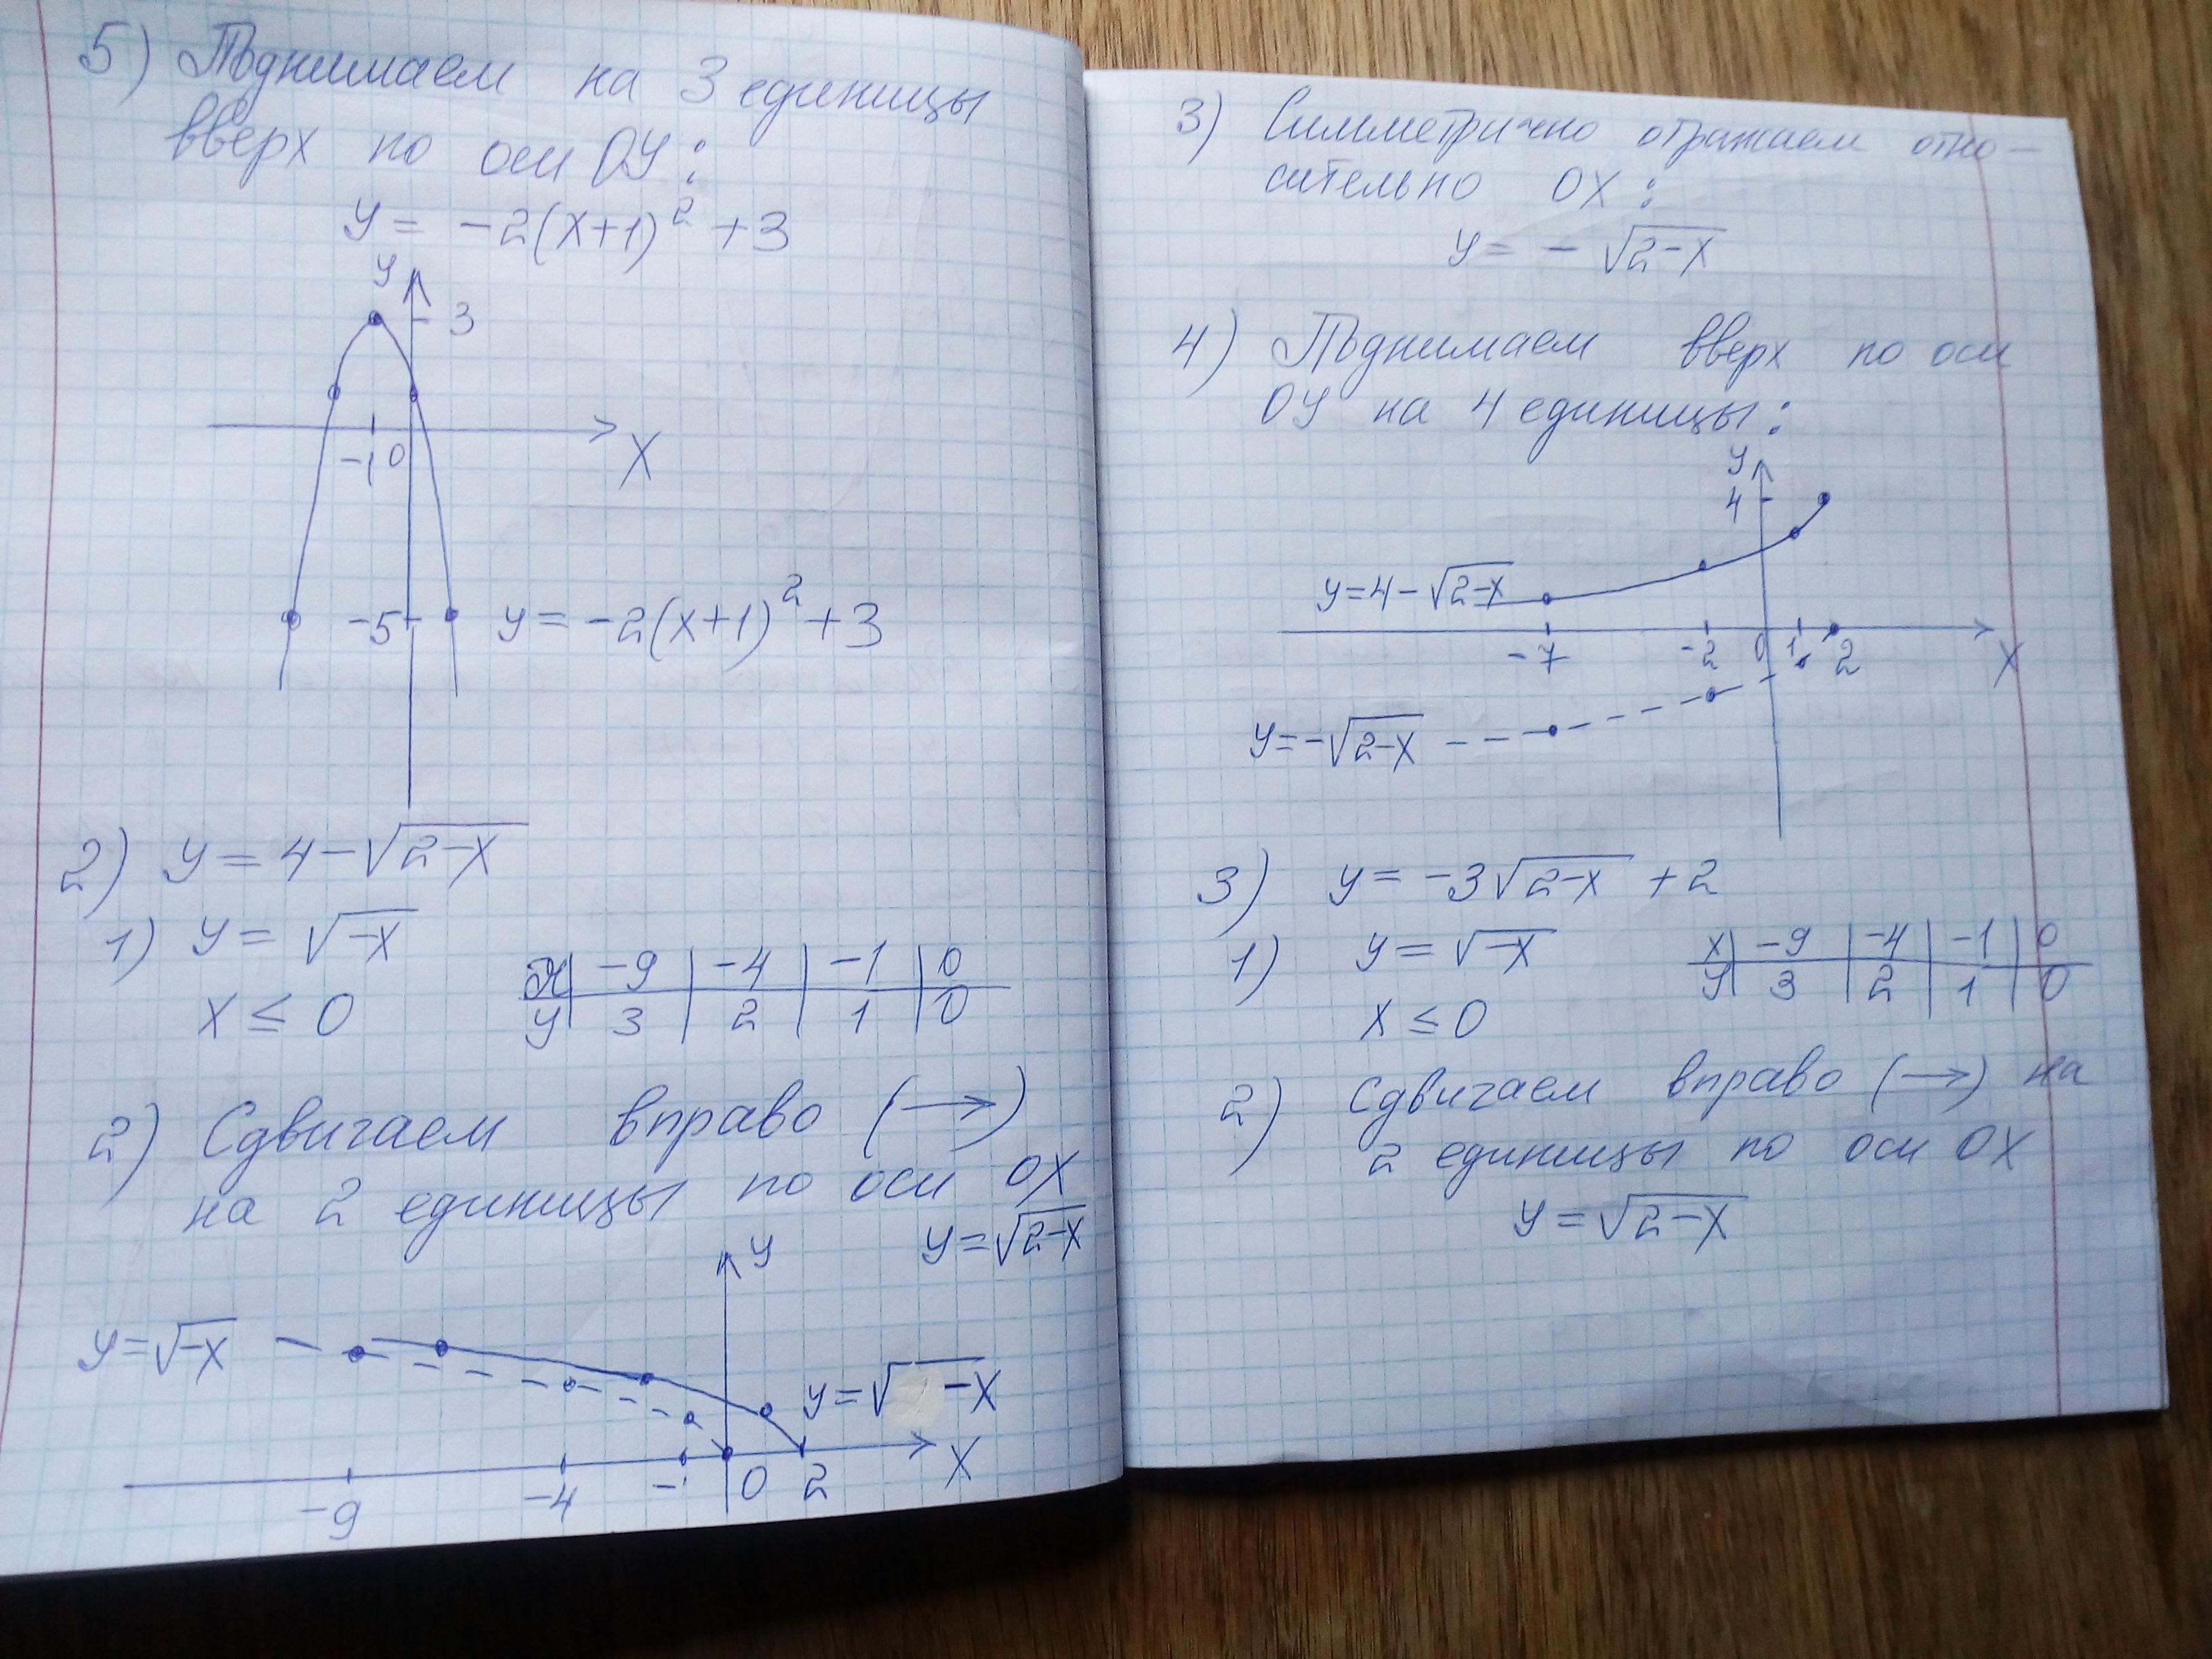 5) Поднимаем на 3 единицы
вверх по оси OY:
y = -2(x+1)² +3
y
3
-1 0
X
-5
y = -2(x+1)²+3
2) y = 4-√(2-x)
1) y = √(-x)
x ≤ 0
x | -9 | -4 | -1 | 0
y | 3 | 2 | 1 | 0
2) Сдвигаем вправо (→)
на 2 единицы по оси OX
y=√(2-x)
y
y=√(-x)
y=√( -x)
-9 -4 -1 0 2 X
3) Симметрично отражаем отно-
сительно OX:
y = - √(2-x)
4) Поднимаем вверх по оси
OY на 4 единицы:
y
4
y=4-√(2-x)
-7 -2 0 1 2 X
y=-√(2-x)
3) y = -3√(2-x) +2
1) y = √(-x)
x ≤ 0
x | -9 | -4 | -1 | 0
y | 3 | 2 | 1 | 0
2) Сдвигаем вправо (→) на
2 единицы по оси OX
y = √(2-x)